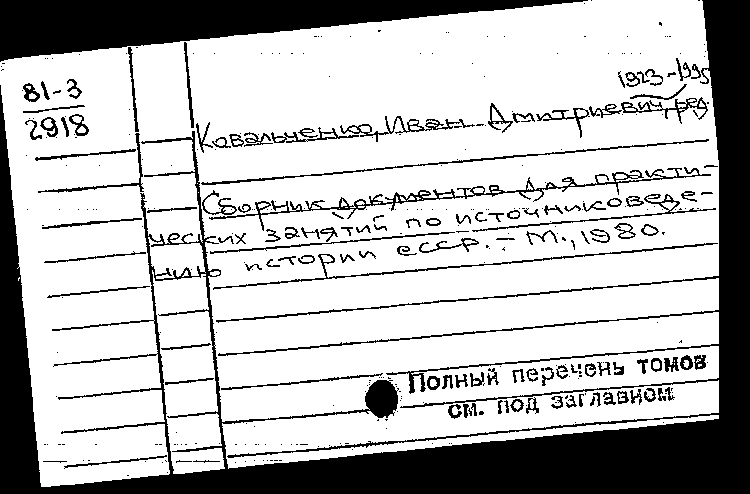 81-3
2918
1923-1995
Ковальченко, Иван Дмитриевич, ред.
Сборник документов для практи-
ческих занятий по источниковеде-
нию истории СССР. - М., 1980.
Полный перечень томов
см. под заглавием